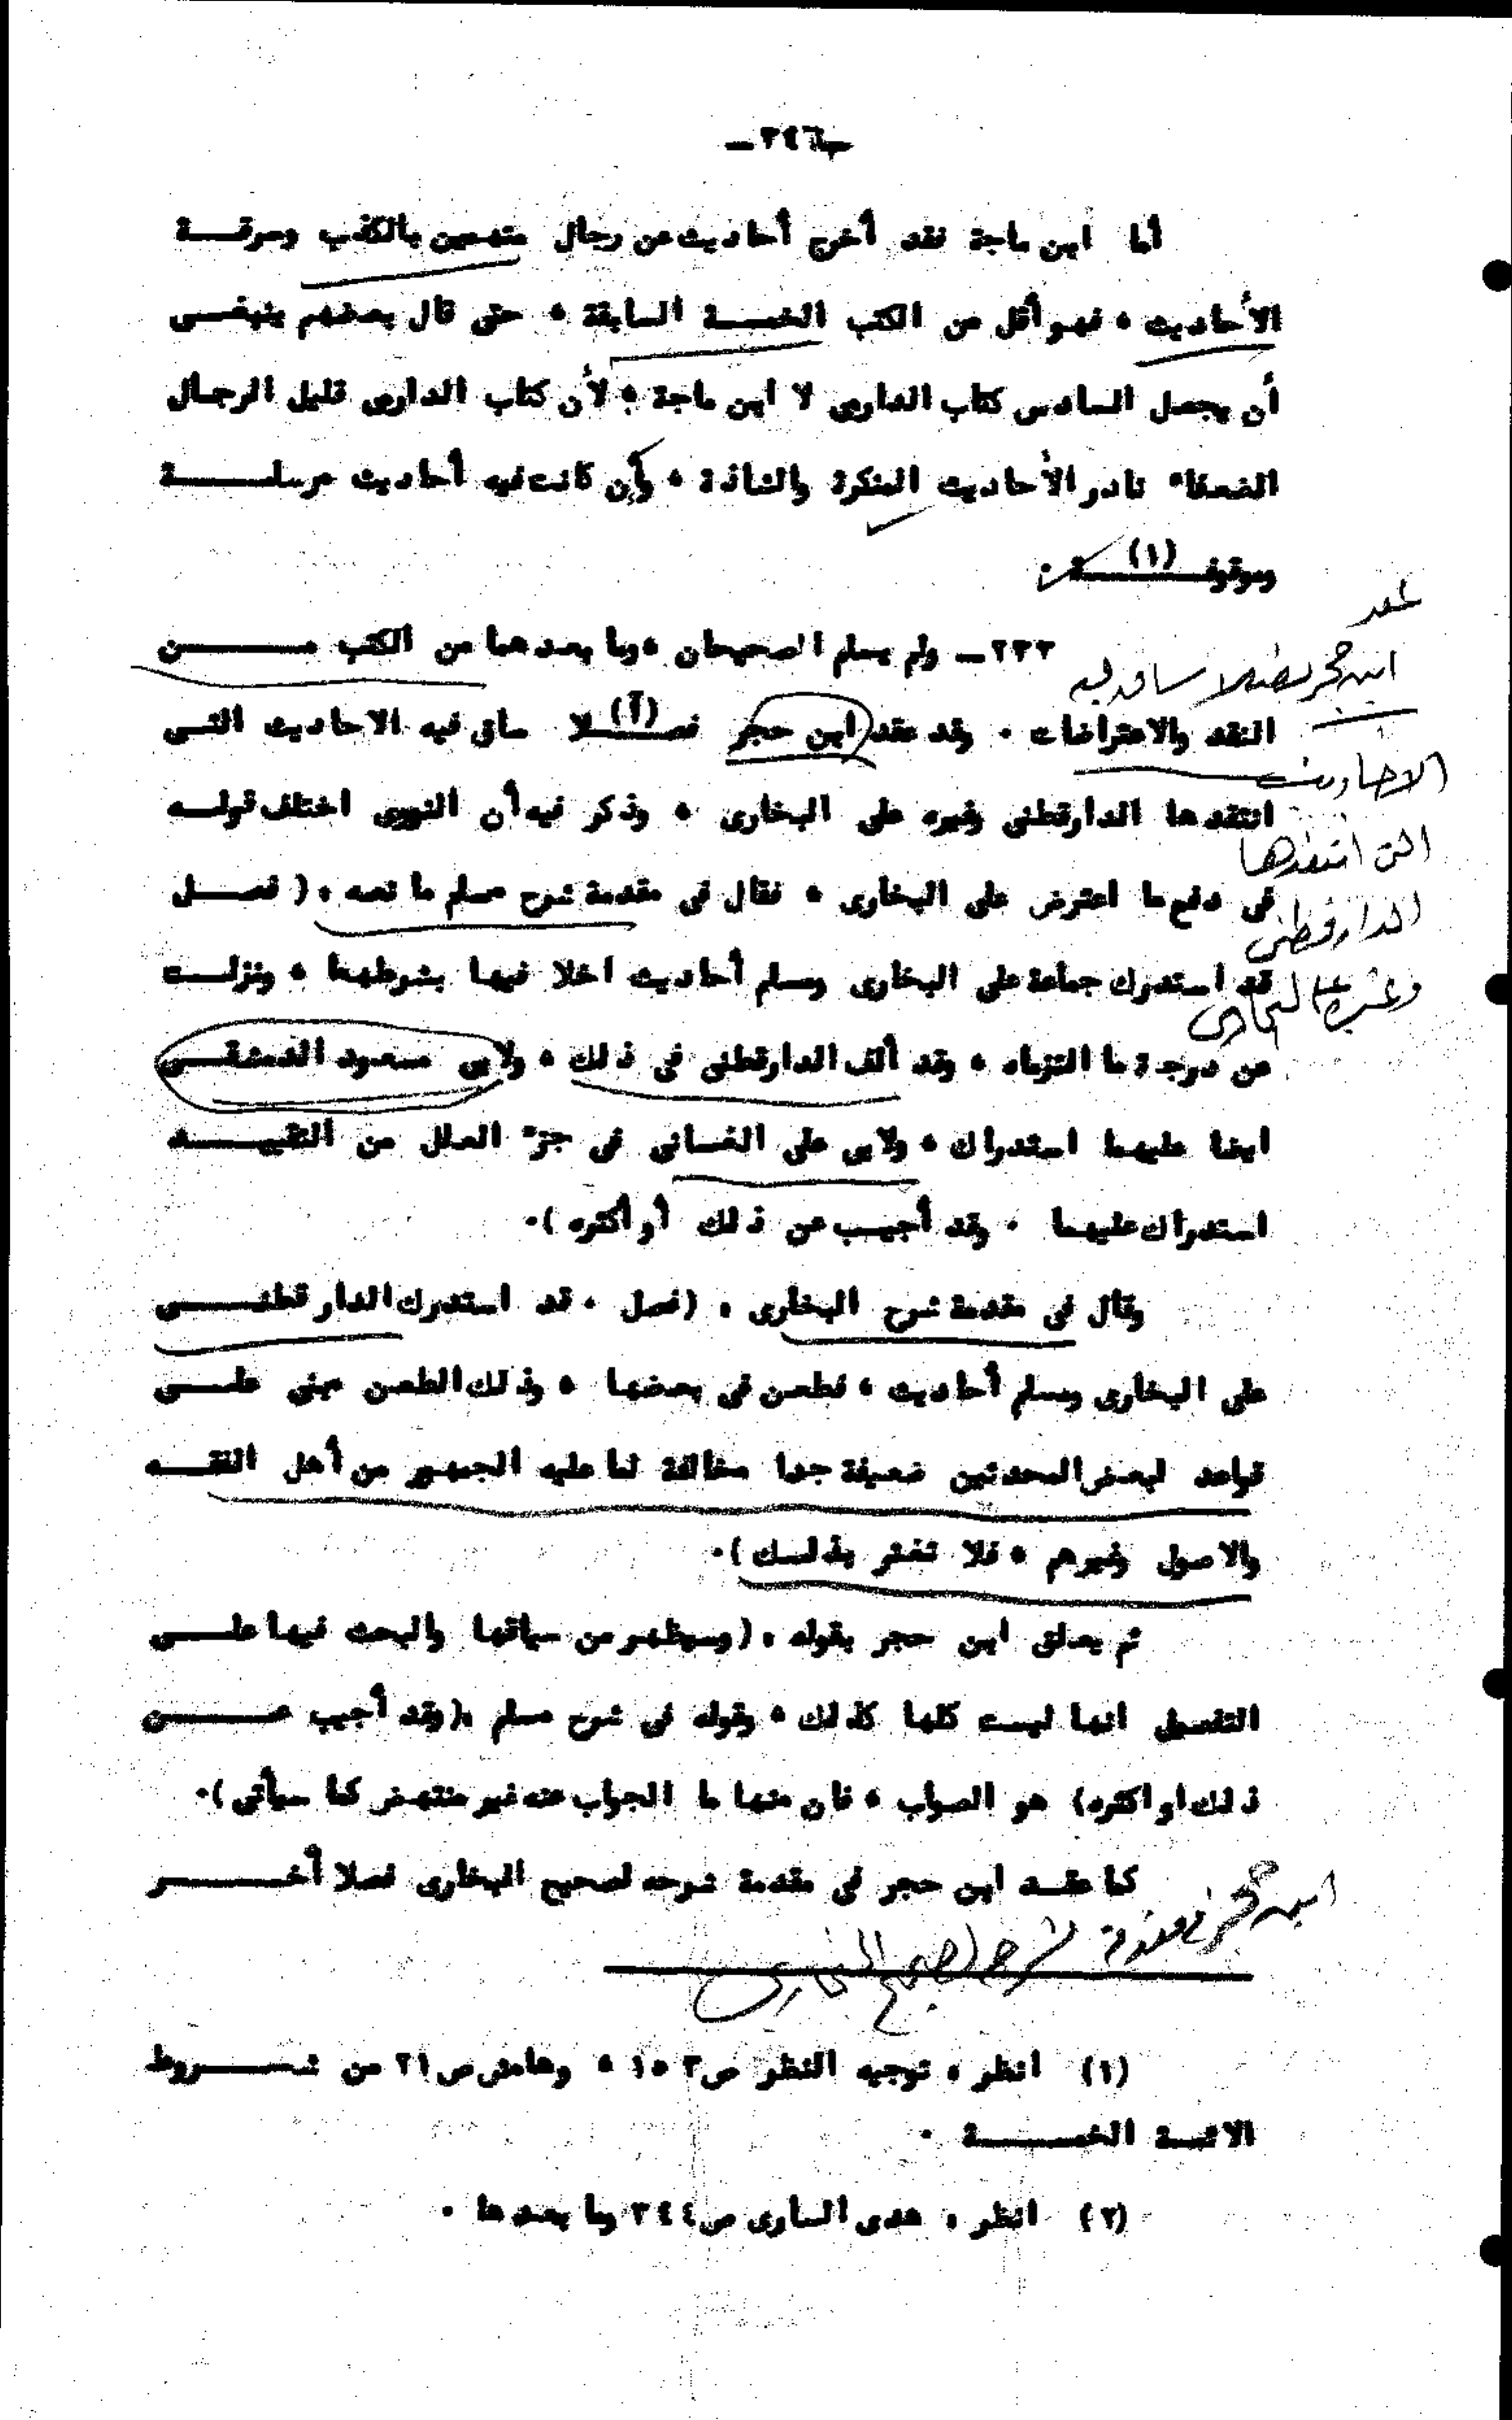 ـ٣٤٦ـ
أما ابن ماجة فقد أخرج أحاديث عن رجال متهمين بالكذب وسرقـــة
الأحاديث ، فهو أقل من الكتب الخمسـة السابقة ، حتى قال بعضهم ينبغــى
أن يجعل السادس كتاب الدارمى لا ابن ماجة ، لأن كتاب الدارمى قليل الرجال
الضعفاء نادر الأحاديث المنكرة والشاذة ، وإن كانت فيه أحاديث مرسلــــة
وموقوفــــة (١) .
٢٣٣ـ ولم يسلم الصحيحان ، وما بعدهما من الكتب مـــــن
عقد
ابن حجر فصلا ساق فيه
النقد والاعتراضات . وقد عقد ابن حجر فصـــلا (٢) ساق فيه الاحاديث التــى
الاحاديث
انتقدها الدارقطنى وغيره على البخارى ، وذكر فيه أن النووى اختلف قولــه
التى انتقدها
فى دفع ما اعترض على البخارى ، فقال فى مقدمة شرح مسلم ما نصه : ( فصــل
الدارقطنى
قد استدرك جماعة على البخارى ومسلم أحاديث اخلا فيها بشرطهما ، ونزلــت
وغيره على البخارى
عن درجة ما التزماه ، وقد ألف الدارقطنى فى ذلك ، ولابى مسعود الدمشقــى
ايضا عليهما استدراك ، ولابى على الغسانى فى جزء العلل من التقييــــد
استدراك عليهما . وقد أجيب عن ذلك أو أكثره ).
وقال فى مقدمة شرح البخارى : (فصل ، قد استدرك الدارقطنــــى
على البخارى ومسلم أحاديث ، فطعن فى بعضها ، وذلك الطعن مبنى علــى
قواعد لبعض المحدثين ضعيفة جدا مخالفة لما عليه الجمهور من أهل الفقــه
والاصول وغيرهم ، فلا تغتر بذلــك ).
ثم يعلق ابن حجر بقوله : ( وسيظهر من سياقها والبحث فيها علــى
التفصيل انها ليست كلها كذلك ، وقوله فى شرح مسلم :( وقد أجيب عــــن
ذلك او اكثره) هو الصواب ، فان منها ما الجواب عنه غير منتهض كما سيأتى ).
كما عقـد ابن حجر فى مقدمة شرحه لصحيح البخارى فصلا أخــــر
ابن حجر فى مقدمة شرح الصحيح البخارى
(١) انظر : توجيه النظر ص ١٥٣ ، وهامش ص ٢١ من شــــروط
الائمـة الخمســــة .
(٢) انظر : هدى السارى ص ٣٤٤ وما بعدها .